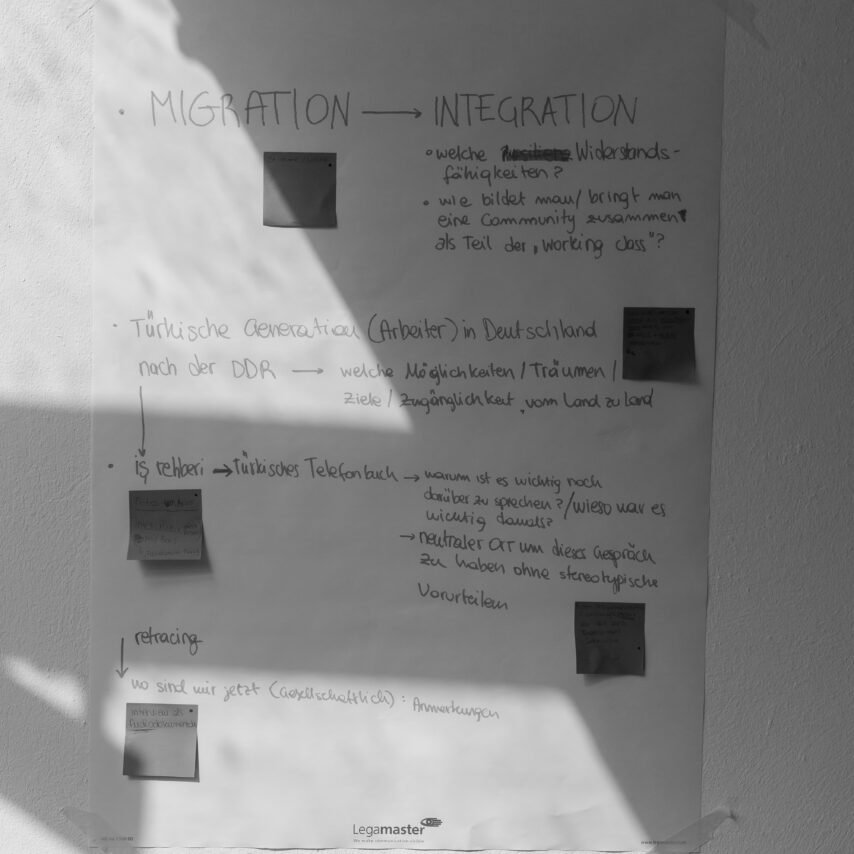 • MIGRATION → INTEGRATION
• welche Widerstands-
fähigkeiten?
• wie bildet man / bringt man
eine Community zusammen
als Teil der „working class"?
• Türkische Generation (Arbeiter) in Deutschland
nach der DDR → welche Möglichkeiten / Träumen /
Ziele / Zugänglichkeit „vom Land zu Land
• iş rehberi → Türkisches Telefonbuch → warum ist es wichtig noch
darüber zu sprechen? / wieso war es
wichtig damals?
→ neutraler Ort um dieses Gespräch
zu haben ohne stereotypische
Vorurteilen
retracing
wo sind wir jetzt (Gesellschaftlich): Anmerkungen
Interview als
Audiodokumente
Legamaster
We make communication visible
www.legamaster.com